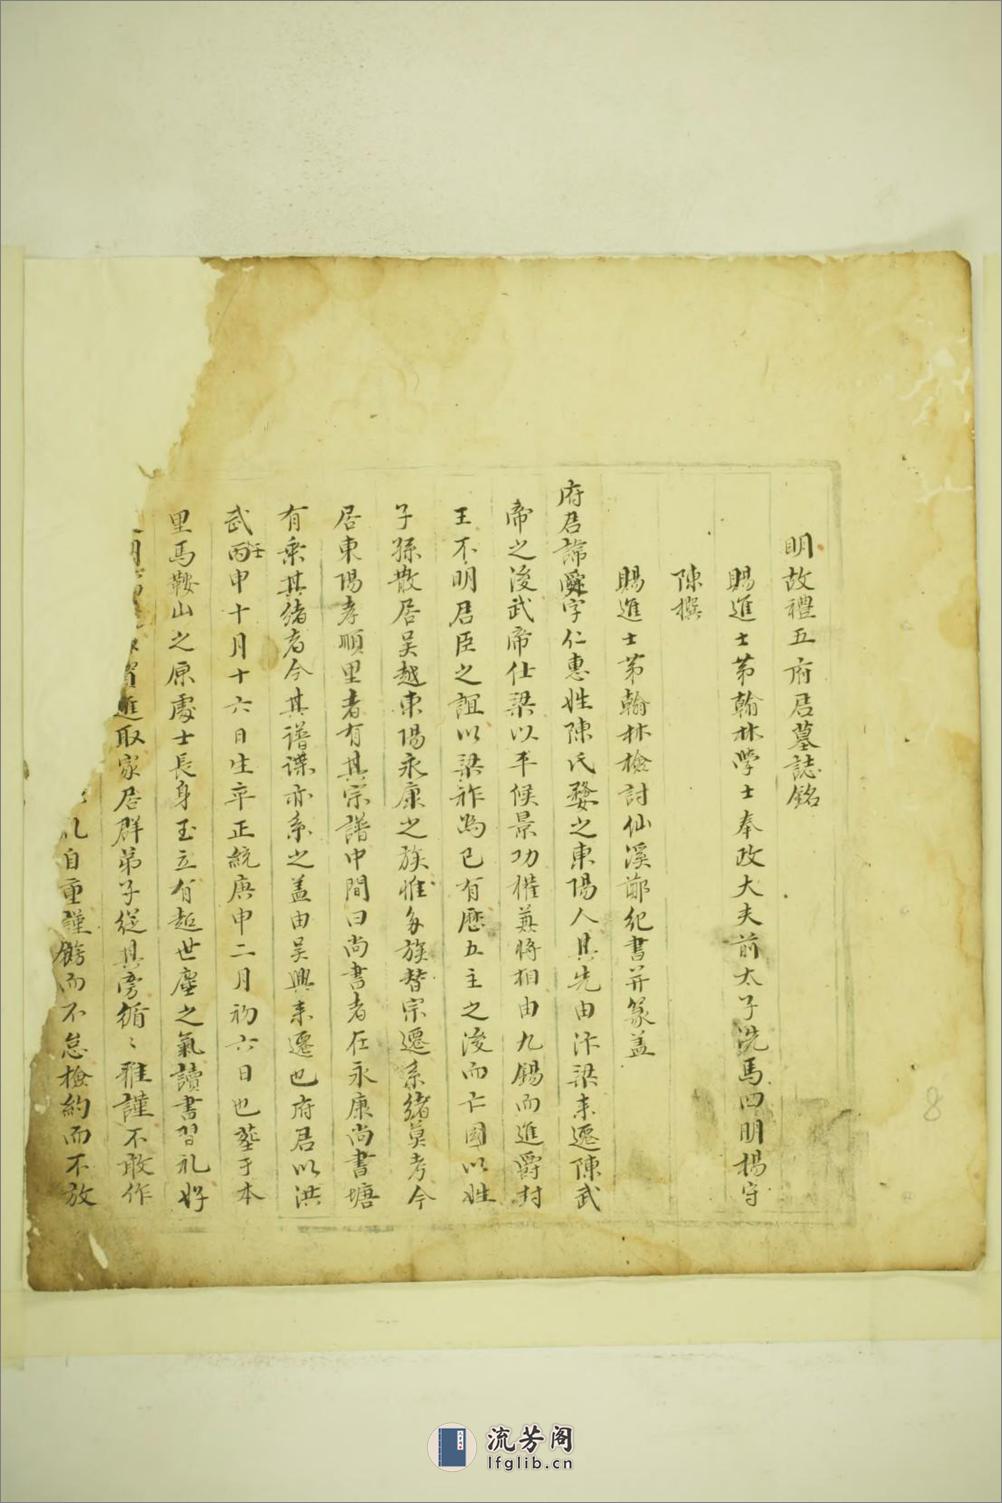 明故禮五府君墓誌銘
賜進士第翰林學士奉政大夫前太子洗馬四明楊守
陳撰
賜進士第翰林檢討仙溪鄭紀書并篆蓋
府君諱舜字仁惠姓陳氏婺之東陽人其先由汴梁来遷陳武
帝之後武帝仕梁以平候景功權兼將相由九錫而進爵封
王不明君臣之誼以梁祚為已有歷五主之後而亡國以姓
子孫散居吴越東陽永康之族惟多族替宗遷系緒莫考今
居東陽孝順里者有其宗譜中間曰尚書者在永康尚書塘
有乗其緒者今其譜諜亦系之盖由吴興来遷也府君以洪
武丙壬申十月十六日生卒正統庚申二月初六日也塟于本
里馬鞍山之原處士長身玉立有超世塵之氣讀書習礼好
進取家居群弟子從其旁循〻雅謹不敢作
自重謹飭而不怠檢約而不放
8
流芳阁
lfglib.cn